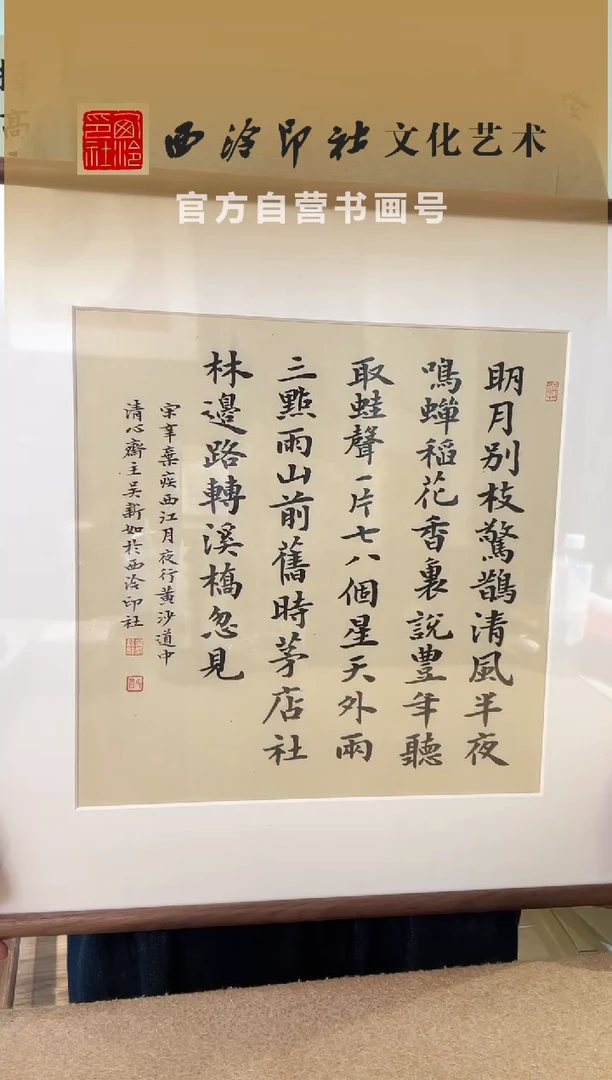 西泠印社
西泠印社文化艺术
官方自营书画号
眀月别枝驚鵲清風半夜
鳴蟬稻花香裏說豐年聽
取蛙聲一片七八個星天外兩
三點雨山前舊時茅店社
林邊路轉溪橋忽見
宋辛棄疾西江月夜行黃沙道中
清心齋主吳新如於西泠印社